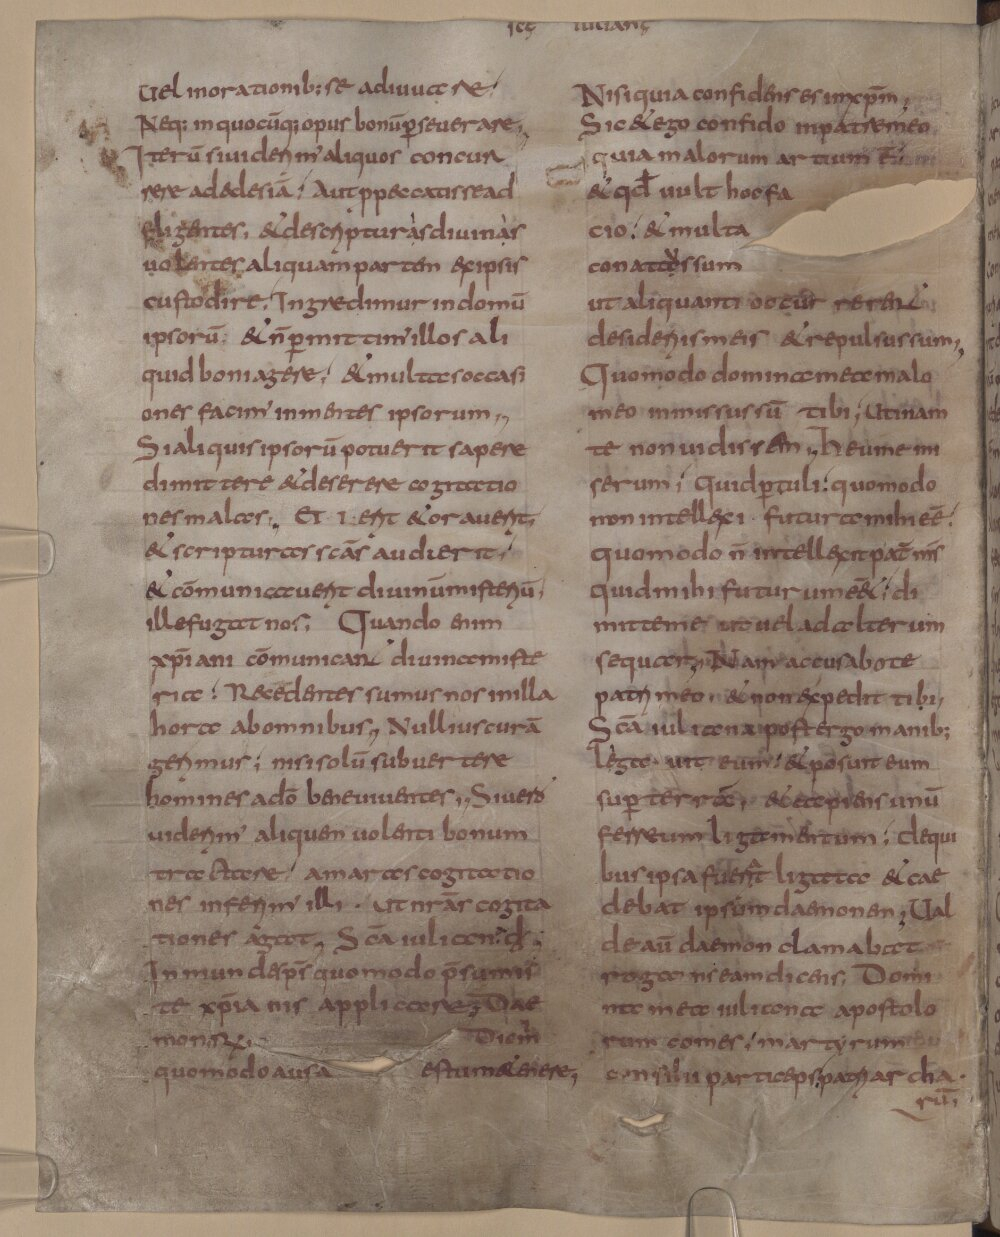 sce iuliane
Uel inorationib; se adiuuare
Neq; inquocūq; opus bonū pseuerare,
Iterū siuiderim' aliquos concur
rere adeclesiā, Aut ppeccatis se ad
fligentes, & describturàs diuinàs
uolentes aliquam partem exipsis
custodire, Ingredimur indomū
ipsorū, & n̄ pmittim' illos ali
quid boni agere, & multas occasi
ones facim' inmentes ipsorum,,
Si aliquis ipsorū potuerit sapere
dimittere & deserere cogitatio
nes malas,, Et ierit & orauerit,
& scripturas scās audierit,
& cōmunicauerit diuinū misteriū,
ille fugat nos, Quando enim
xp̄iani cōmunicant diuina miste
ria, Recedentes sumus nos inilla
hora abomnibus,, Nullius curā
gerimus, nisi solū subuertere
homines adō bene uiuentes,, Si uero
uiderim' aliquem uolenti bonum
tractare, amaras cogitatio
nes inferim' illi. Ut nr̄ās cogita
tiones agat,, Scā iuliana d̄,
Inmunde sp̄s quomodo p̄sumis
te xp̄ianis applicare, Dae
mon dixi. Dic m̄
quomodo ausa es tu me tenere,
Nisi quia confidens es inxp̄m,
Sic & ego confido inpatre meo
quia malorum artium ē.
& qd uult hoc fa
cio, & multa
conatus sum
ut aliquanti occurrerent
desideriis meis & repulsus sum,,
Quomodo dominā meā malo
meo inmissus sū tibi, Utinam
te non uidissem, heu me mi
serum, Quid ptuli, quomodo
non intellexi futura mihi eē,
quomodo n̄ intellexit pat̄ ms̄
quid mihi futurum eēt, di
mitte me ut uel ad alterum
sequar,, Nam accusabo te
patri meo, & non expedit tibi,
Scā iuliana post ergo manib;
legauit eum, & posuit eum
sup terrā, & accipiens unū
ferreum ligamentum, de qui
bus ipsa fuerat ligata & cae
debat ipsum daemonem, Ual
de aū daemon clamabat
rogans eam dicens, Domi
na mea iuliana apostolo
rum comes, martyrum
consilii particeps patriarcha
rū,